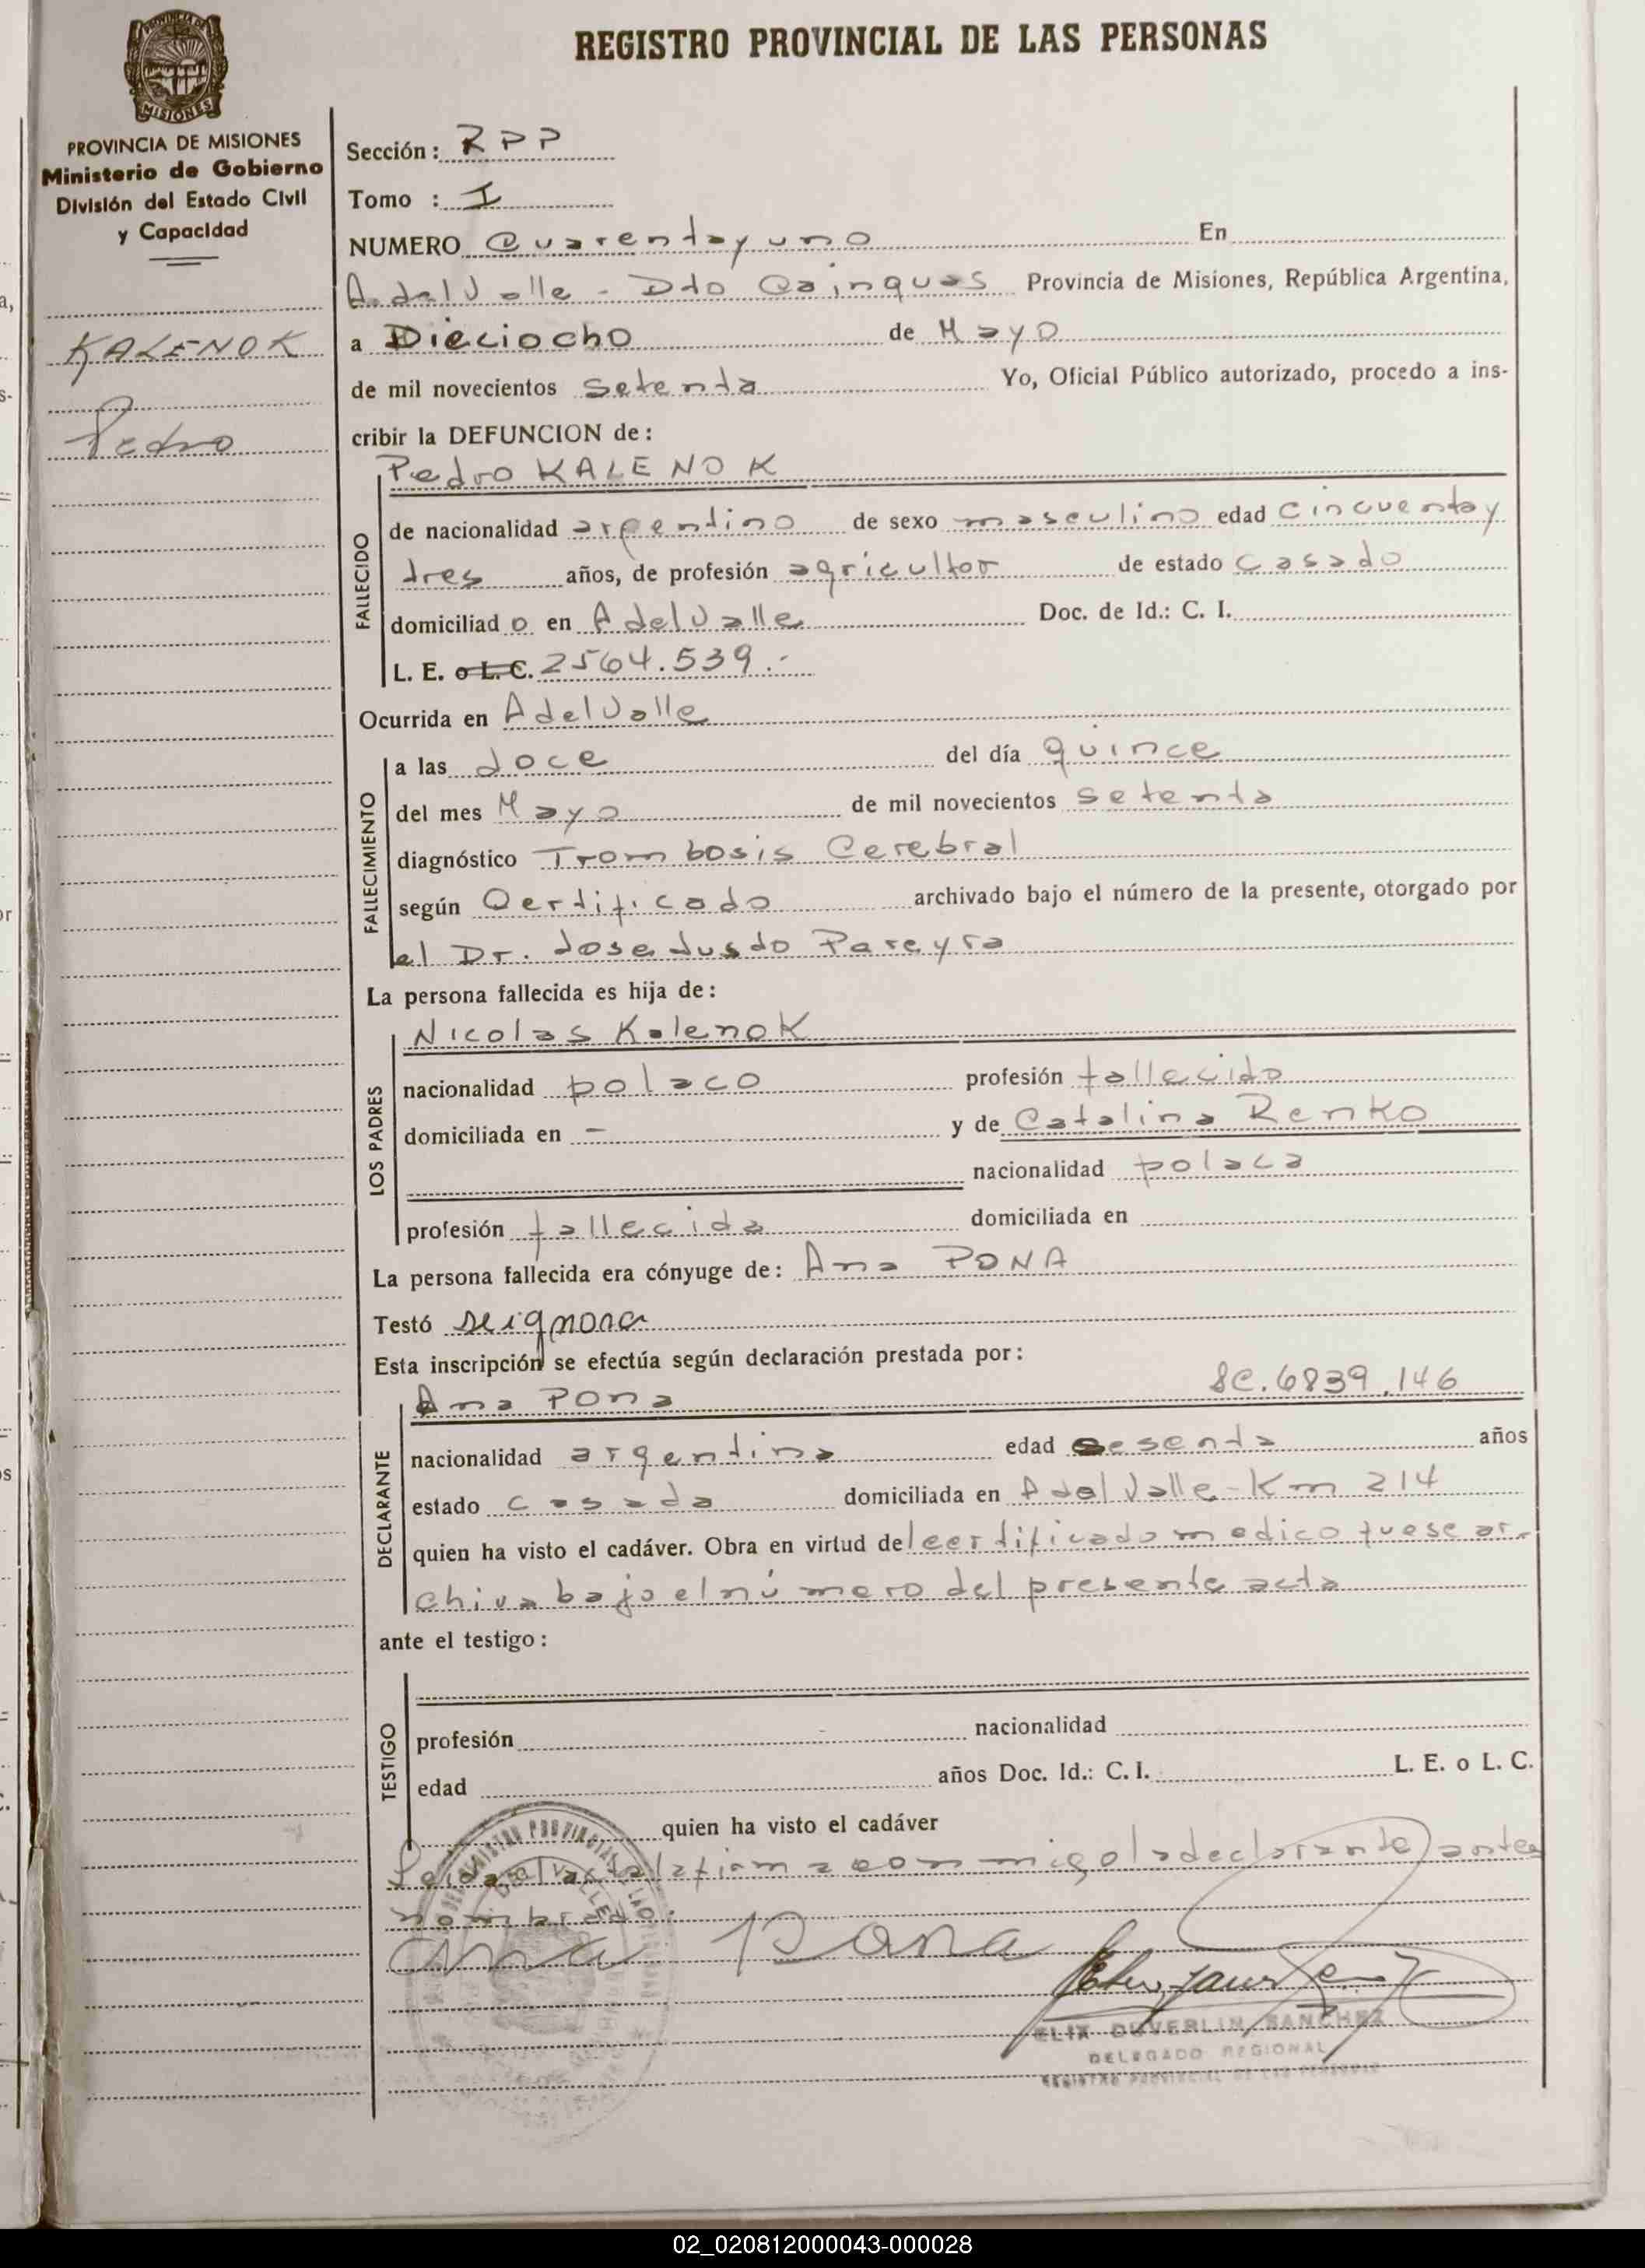 REGISTRO PROVINCIAL DE LAS PERSONAS
MISIONES
PROVINCIA DE MISIONES
Ministerio de Gobierno
División del Estado Civil
y Capacidad
KALENOK
Pedro
Sección: RPP
Tomo : I
NUMERO Cuarenta y uno En
A. del Valle - Dto Cainguas Provincia de Misiones, República Argentina,
a Dieciocho de Mayo
de mil novecientos setenta Yo, Oficial Público autorizado, procedo a ins-
cribir la DEFUNCION de:
Pedro KALENOK
FALLECIDO
de nacionalidad argentino de sexo masculino edad cincuenta y
tres años, de profesión agricultor de estado casado
domiciliad o en A del Valle Doc. de Id.: C. I.
L. E. o L. C. 2564.539.-
Ocurrida en A del Valle
FALLECIMIENTO
a las doce del día quince
del mes Mayo de mil novecientos setenta
diagnóstico Trombosis Cerebral
según Certificado archivado bajo el número de la presente, otorgado por
el Dr. Jose Justo Pareyra
La persona fallecida es hija de:
LOS PADRES
Nicolas Kalenok
nacionalidad polaco profesión fallecido
domiciliada en - y de Catalina Renko
nacionalidad polaca
profesión fallecida domiciliada en
La persona fallecida era cónyuge de: Ana PONA
Testó se ignora
Esta inscripción se efectúa según declaración prestada por:
DECLARANTE
Ana Pona 6839.146
nacionalidad argentina edad sesenta años
estado casada domiciliada en A del Valle - Km 214
quien ha visto el cadáver. Obra en virtud del certificado medico que se ar-
chiva bajo el número del presente acta
ante el testigo:
TESTIGO
profesión nacionalidad
edad años Doc. Id.: C. I. L. E. o L. C.
quien ha visto el cadáver
Leida el acta la firma conmigo la declarante antes
nombrada.
Ana Pona
DUVERLIN SANCHEZ
DELEGADO REGIONAL
REGISTRO PROVINCIAL DE LAS PERSONAS
02_020812000043-000028